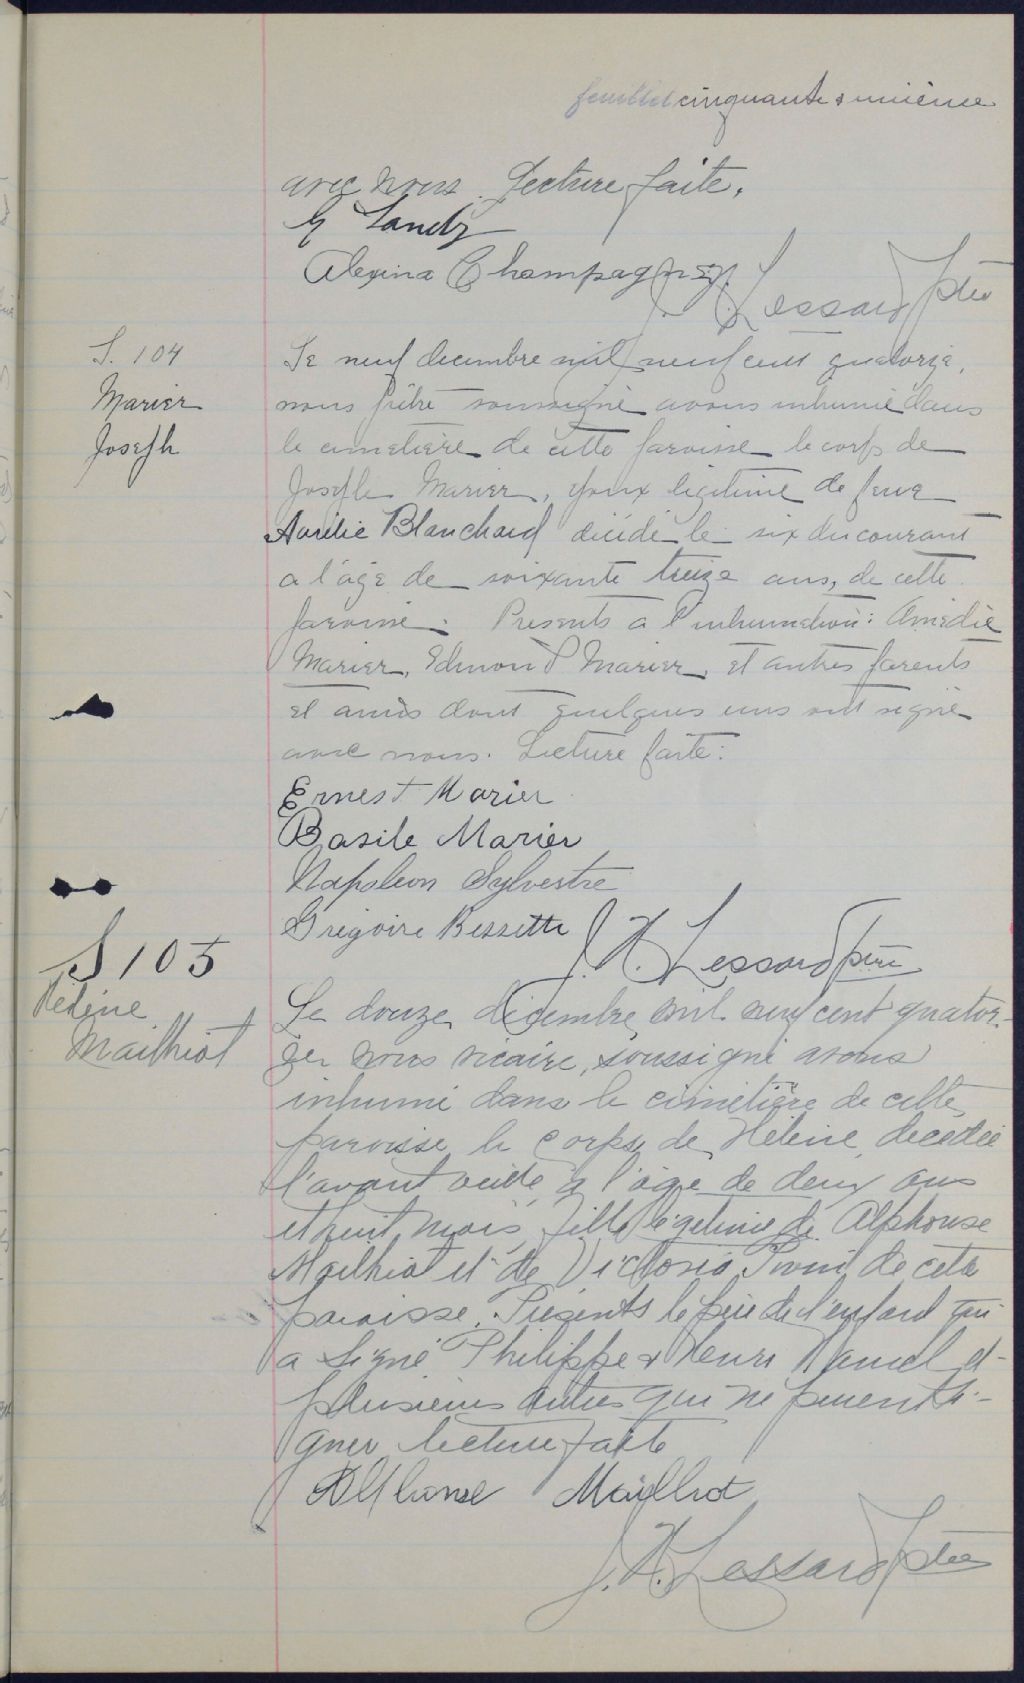 feuillet cinquante & unième
avec nous. Lecture faite.
Landry
Alexina Champagne
J. H. Lessard Ptre
S. 104
Marier
Joseph
Le neuf decembre mil neuf cent quatorze,
nous prêtre soussigné avons inhumé dans
le cimetière de cette paroisse le corps de
Joseph Marier, époux légitime de feue
Aurélie Blanchard décédé le six du courant
a l'âge de soixante treize ans, de cette
paroisse. Presents a l'inhumation: Amédie
Marier, Edmond Marier, et autres parents
et amis dont quelques uns ont signé
avec nous. Lecture faite:
Ernest Marier
Basile Marier
Napoleon Sylvestre
Gregoire Bessette
J. H. Lessard ptre
S 105
Hélène
Mailhiot
Le douze décembre mil neuf cent quator-
ze nous vicaire, soussigné avons
inhumé dans le cimetière de cette
paroisse le corps de Hélène décédée
l'avant veille à l'âge de deux ans
et huit mois, fille légitime de Alphonse
Mailhiot et de Victoria de cette
paroisse. Présents le père de l'enfant qui
a signé Philippe & Henri Hamel et
plusieurs autres qui ne peuvent si-
gner lecture faite
Alphonse Mailhot
J. H. Lessard Ptre